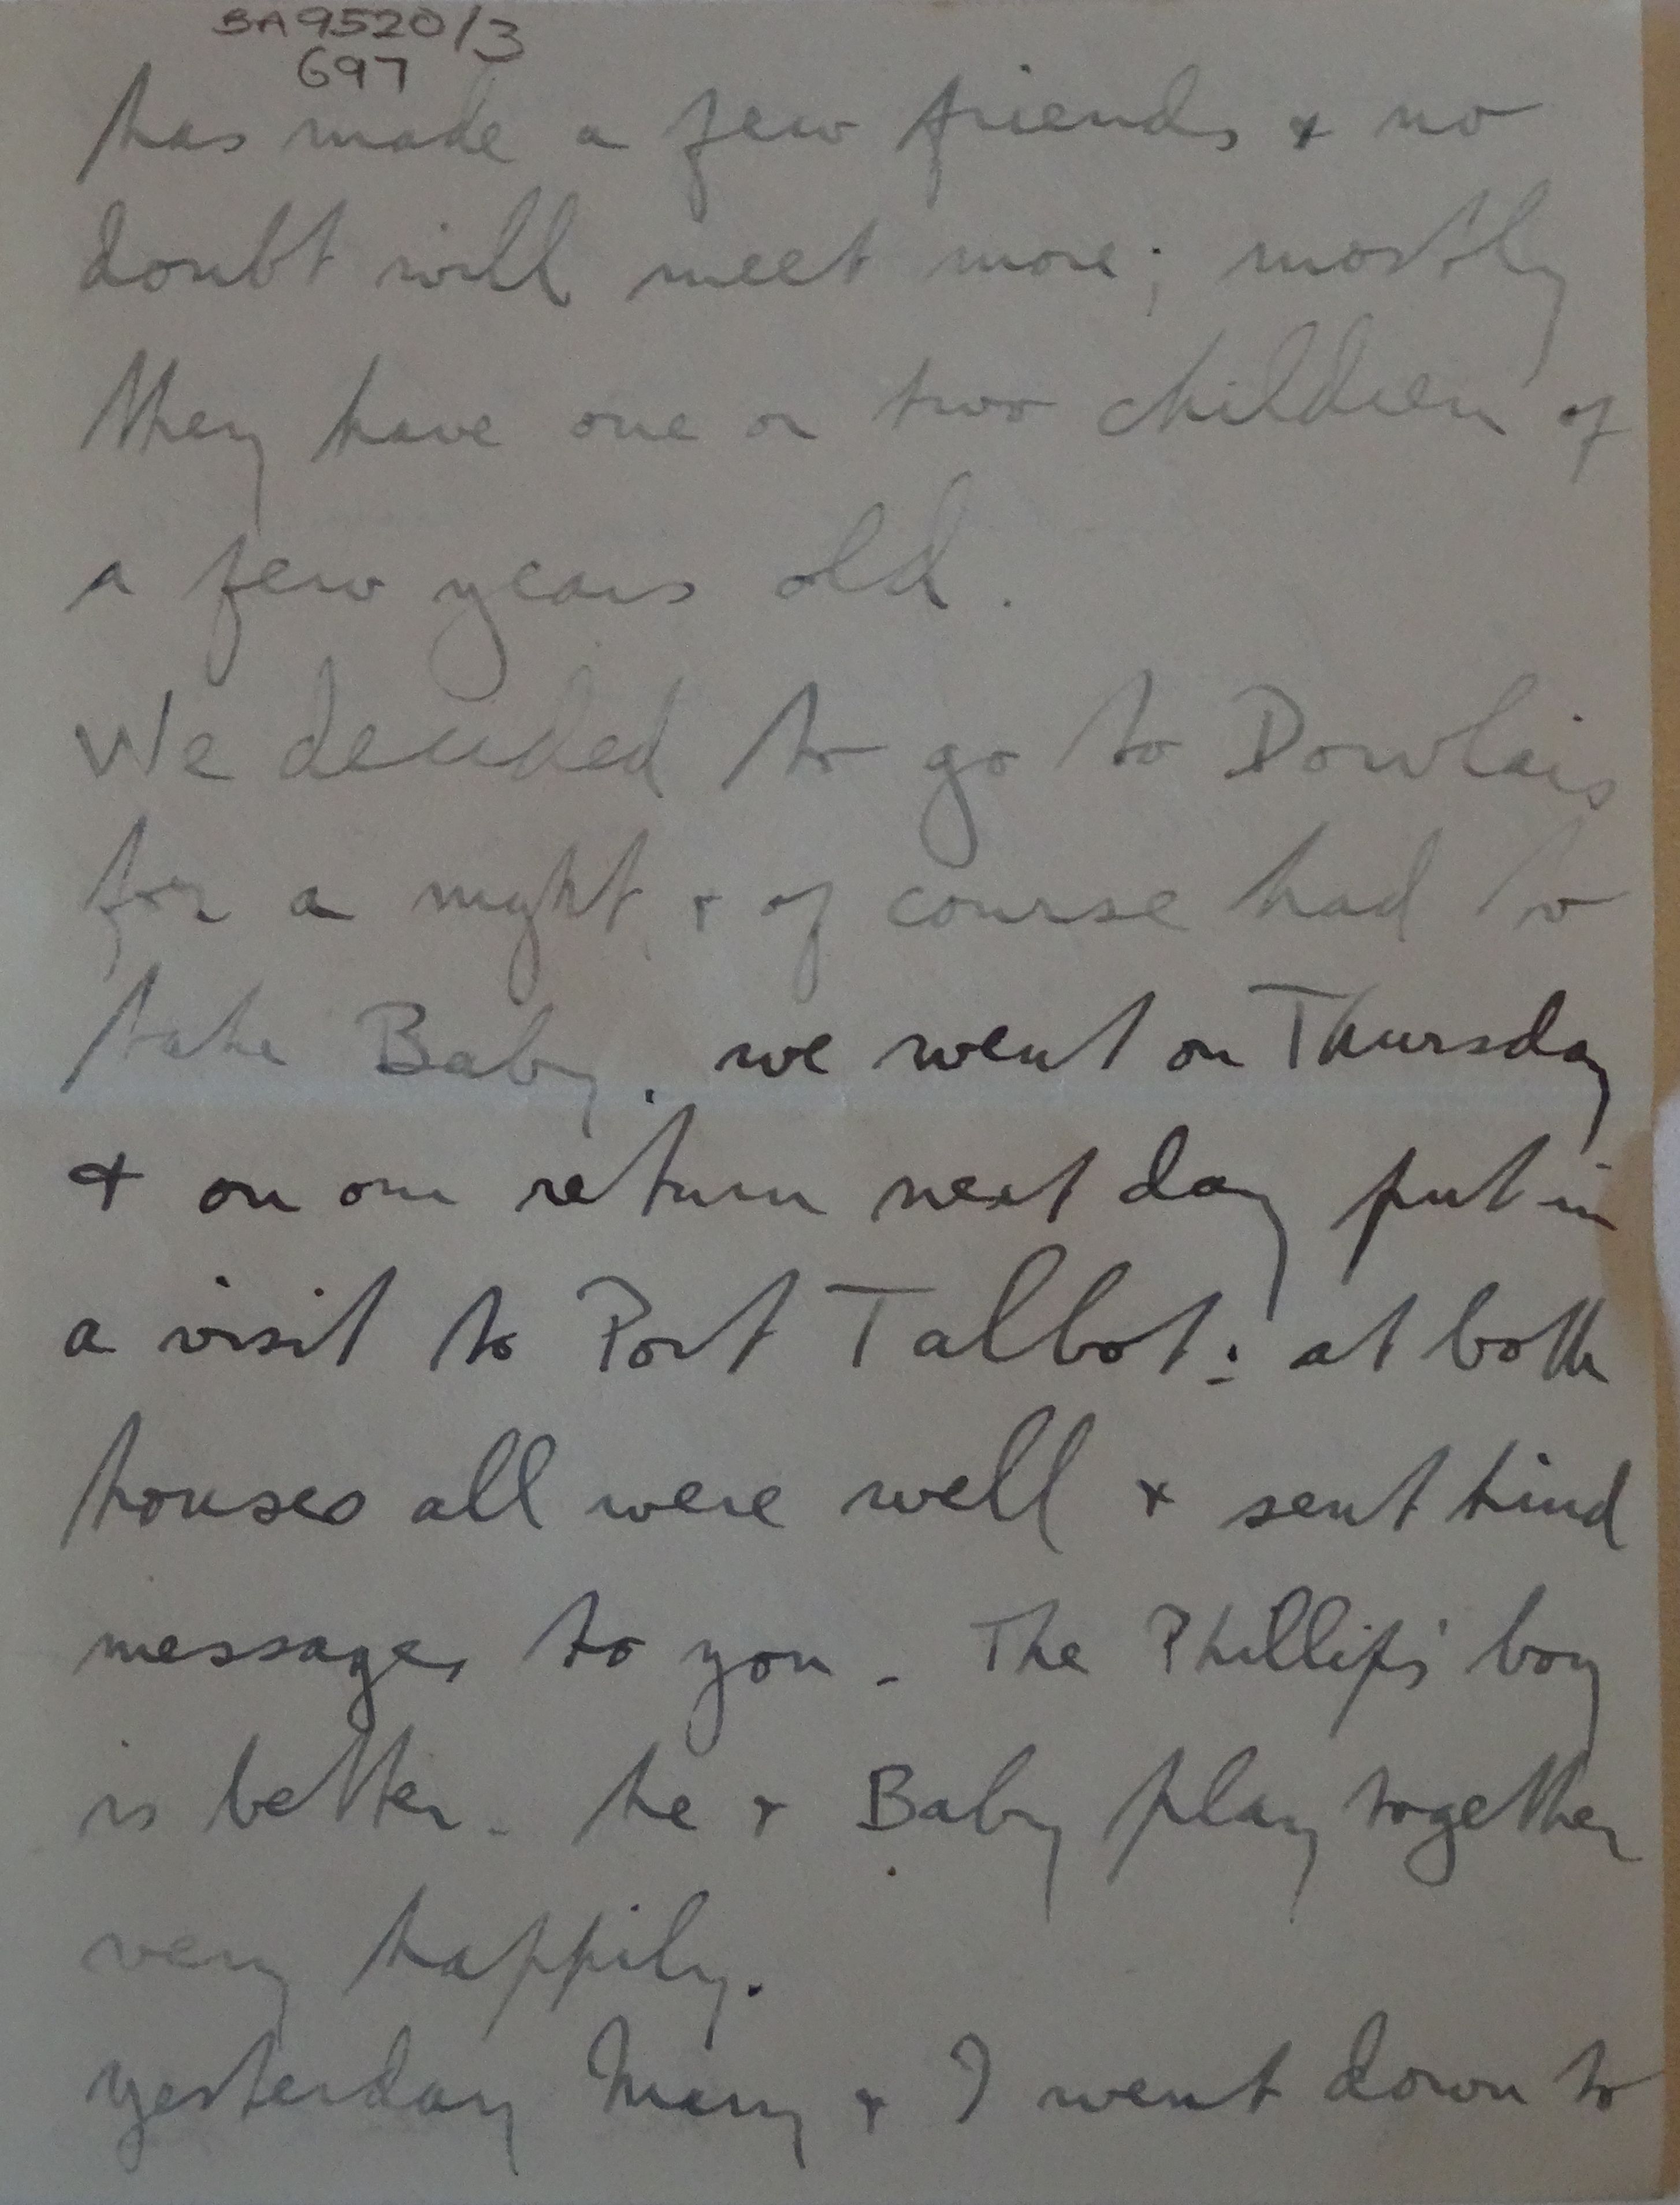 BA9520/3
697
has made a few friends & no
doubt will meet more; mostly
they have one or two children of
a few years old.
We decided to go to Dowlais
for a night & of course had to
take Baby. we went on Thursday
& on our return next day put in
a visit to Port Talbot: at both
houses all were well & sent kind
messages to you. The Phillips' boy
is better. he & Baby play together
very happily.
yesterday Mary & I went down to